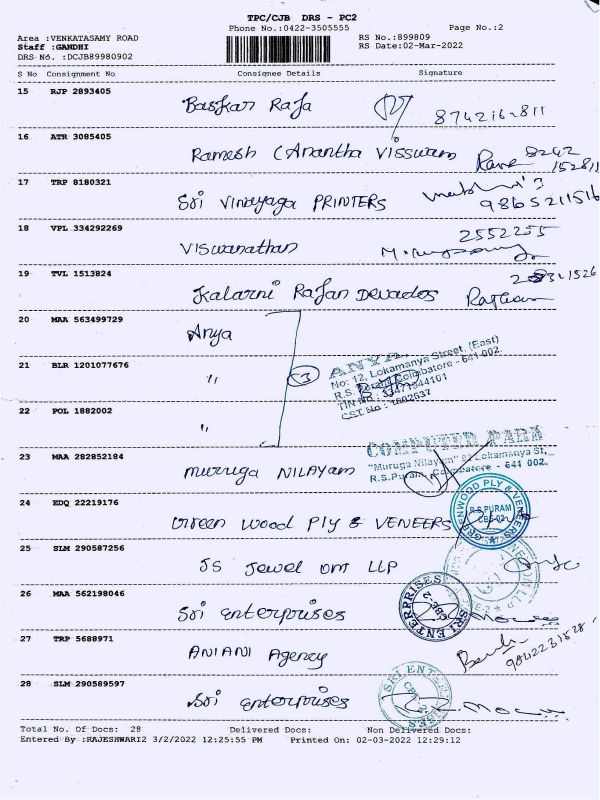 TPC/CJB DRS - PC2
Phone No.:0422-3505555 Page No.:2
Area :VENKATASAMY ROAD RS No.:899809
Staff :GANDHI RS Date:02-Mar-2022
DRS No. :DCJB89980902
S No Consignment No Consignee Details Signature
15 RJP 2893405
Baskar Raja 874216-811
16 ATR 3085405
Ramesh (Anantha Visswam 8242
152811
17 TRP 8180321
Sri Vinayaga PRINTERS 9865211516
18 VPL 334292269 2552255
Viswanathan
19 TVL 1513824
Kalarni Rajan Devados
20 MAA 563499729
Anya
21 BLR 1201077676
" 3
ANYA,
No: 12, Lokamanya Street, (East)
R.S. Puram Coimbatore - 641 002.
TIN No : 33471844161
CST No :
22 POL 1882002
"
COMPUTER PARK
23 MAA 282852184
"Muruga Nilayam" 91 Lokamanya St,
Muruga NILAYAM R.S.Puram, Coimbatore - 641 002.
24 EDQ 22219176
Green Wood Ply & VENEERS
GREENWOOD PLY & VENEERS
R.S.PURAM
CBE-02
25 SLM 290587256
JS Jewel om LLP
26 MAA 562198046
Sri enterprises
SRI ENTERPRISES
CBE-2
27 TRP 5688971
ANIANI Agency 9842231628
28 SLM 290589597
Sri enterprises
SRI ENTERPRISES
Total No. Of Docs: 28 Delivered Docs: Non Delivered Docs:
Entered By :RAJESHWARI2 3/2/2022 12:25:55 PM Printed On: 02-03-2022 12:29:12